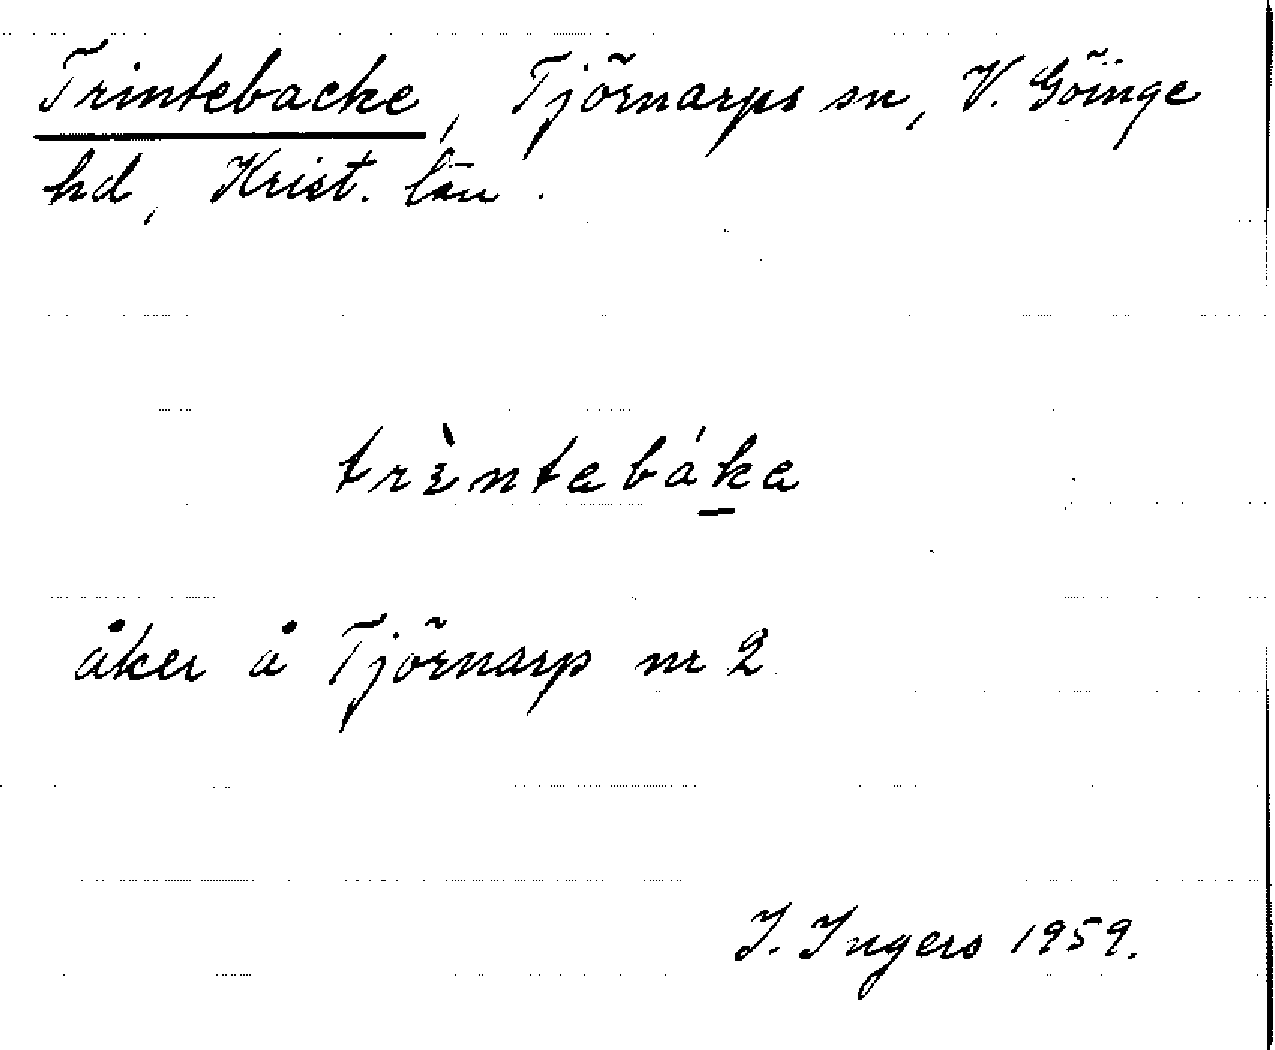 Trintebacke, Tjörnarps sn, V. Göinge
hd, Krist. län.
trὲntebáka
åker å Tjörnarp nr 2
I. Ingers 1959.